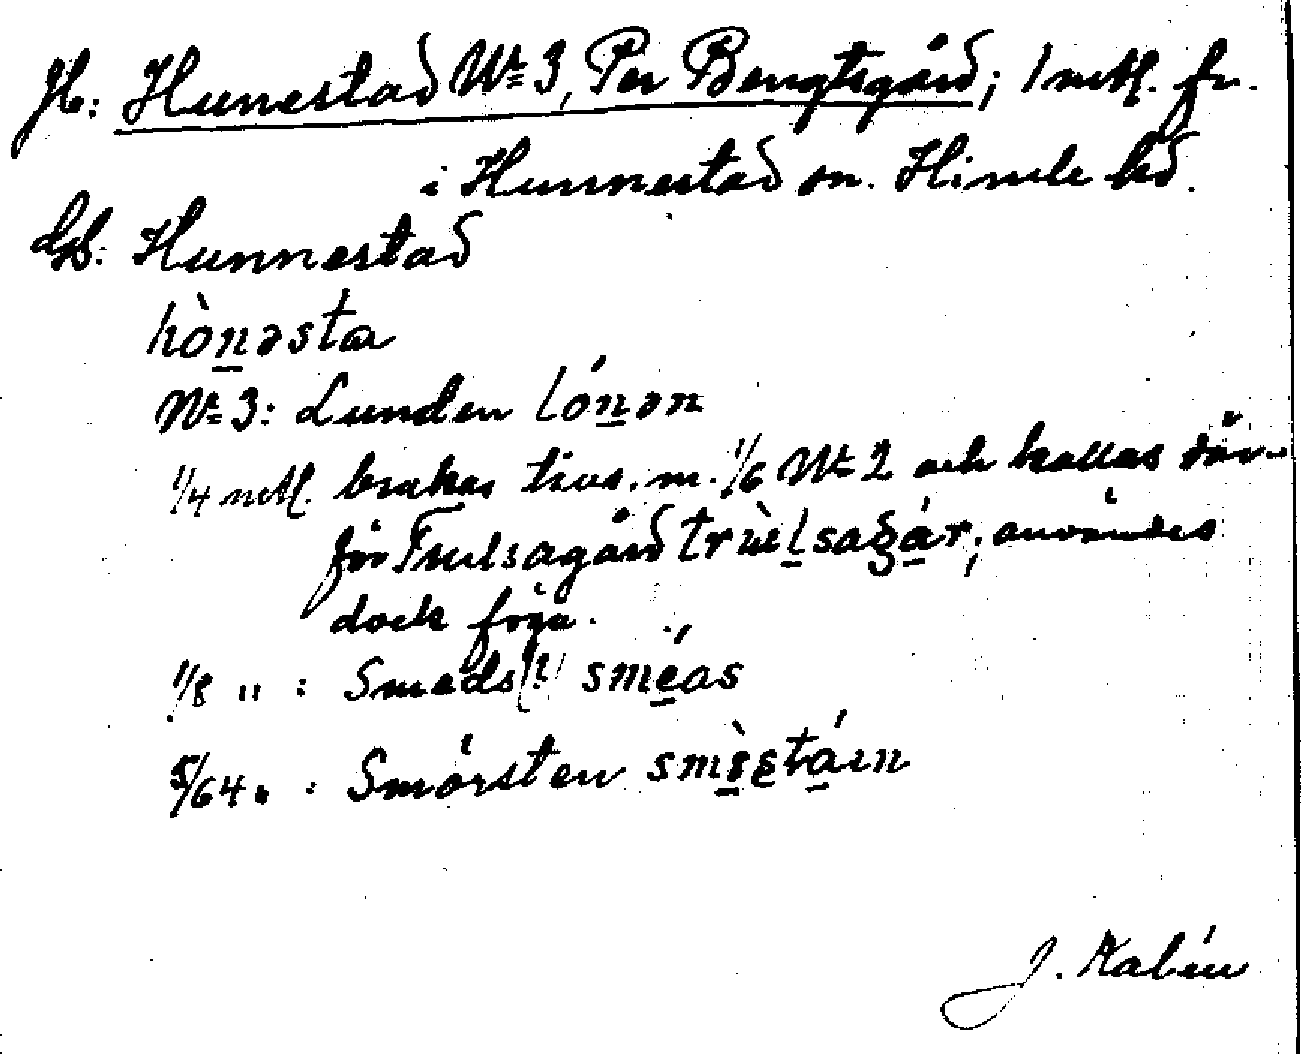 Jb: Hunestad Nr 3, Per Bengtsgård; 1 mtl. fr.
i Hunnestad sn. Himle hd.
Gd: Hunnestad
hòn̲əsta
Nr 3: Lunden lón̲ən
1/4 mtl. brukas tills. m. 1/6 Nr 2 och kallas där-
för Truelsagård trùel̲saga̲r; användes
dock föga.
1/8 " : Smeds(?) sme̲as
5/64 " : Smörsten
J. Kalén